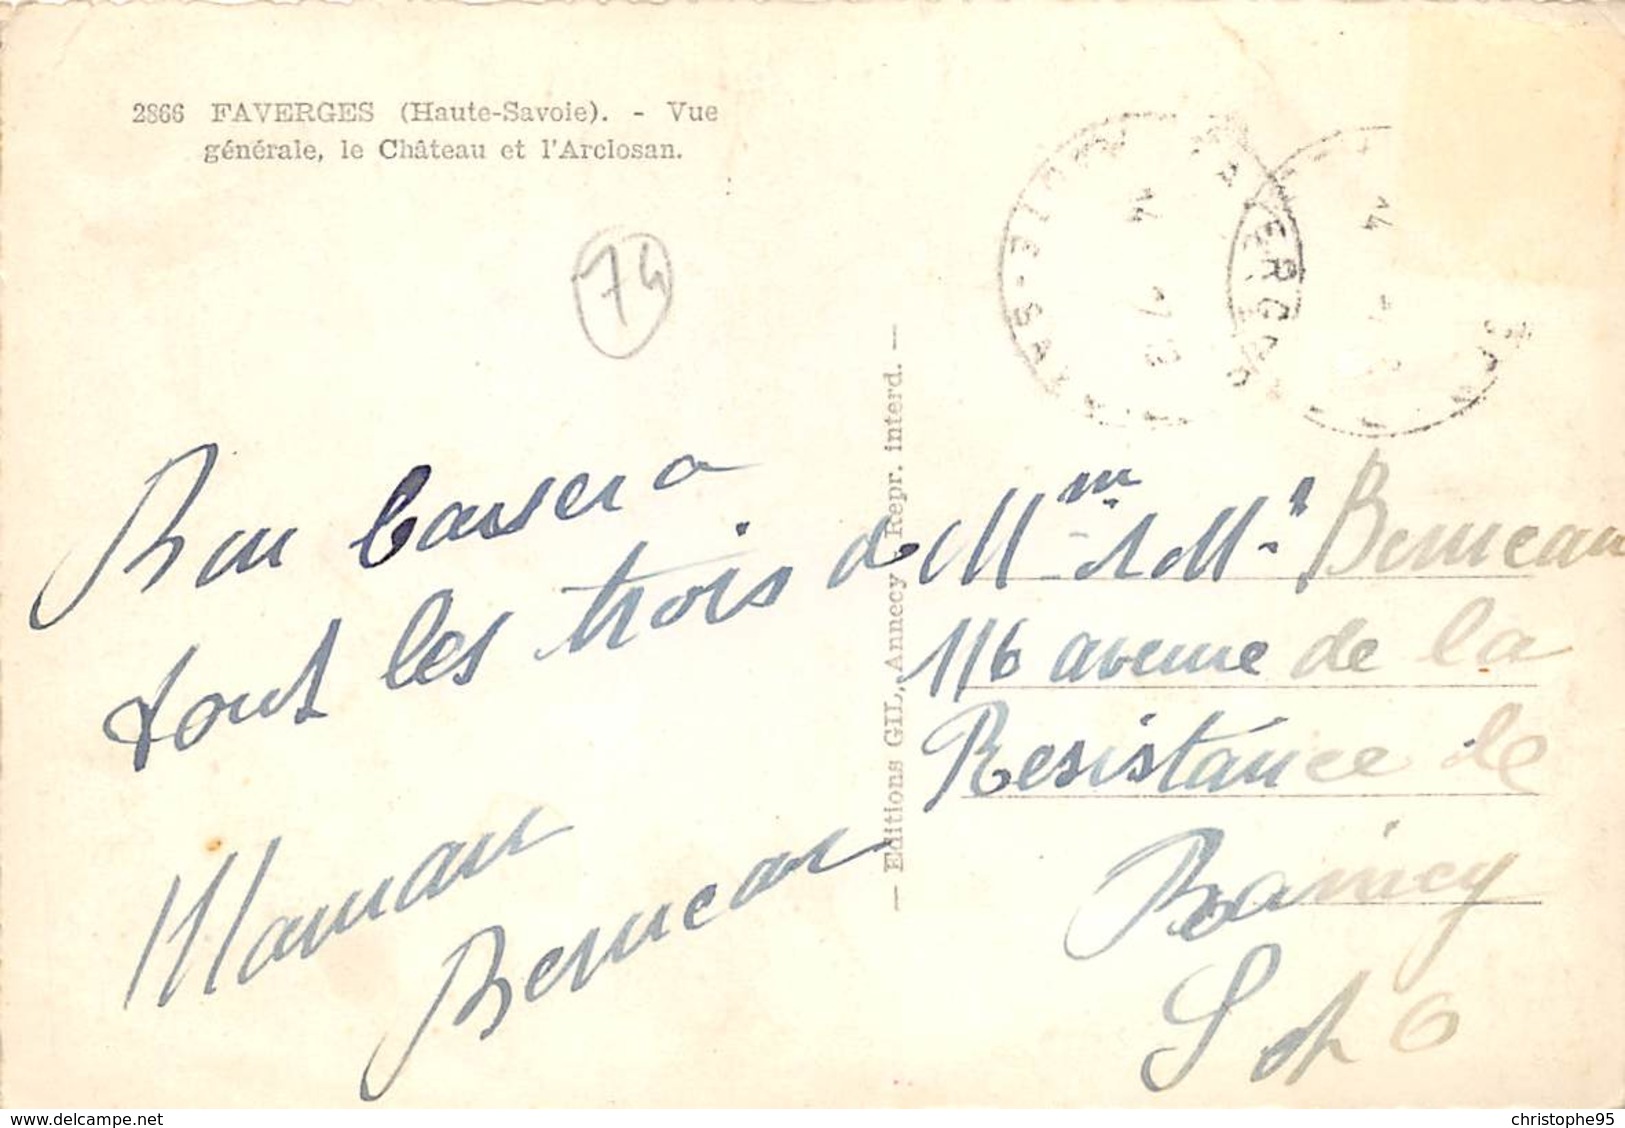 2866 FAVERGES (Haute-Savoie). - Vue
générale, le Château et l'Arclosan.
74
FAVERGES
HTE-SAVOIE
14
14
Bon baiser a
tout les trois
Maman
Berneau
— Editions GIL, Annecy - Repr. interd. —
de Mme Mr Berneau
116 avenue de la
Resistance le
Raincy
S et O
www.delcampe.net
christophe95